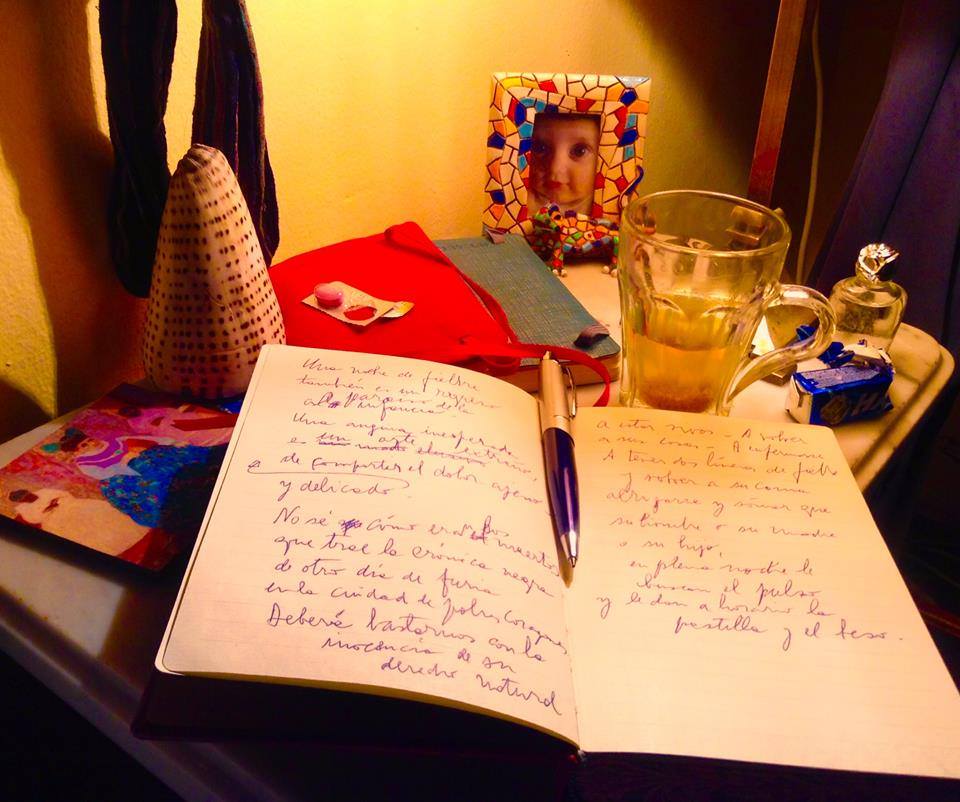 Una noche de fiebre
también es un regreso
al paraíso de la
infancia
Una angina inesperada
es un arte
de compartir el dolor ajeno
y delicado.
No sé cómo eran los muertos
que trae la crónica negra
de otro día de furia
en la ciudad de pobres corazones
Debería bastarnos con la
inocencia de su
derecho natural
a estar vivos. A volver
a sus casas. A enfermarse
A tener dos líneas de fiebre
y volver a su cama
abrigarse y soñar que
su hombre o su madre
o su hijo,
en plena noche le
buscan el pulso
y le dan a horario la
pastilla y el beso.